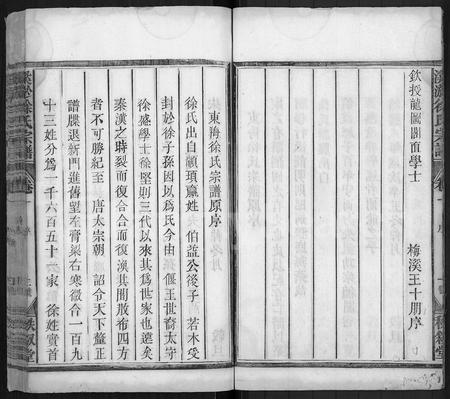 欽授龍圖閣直學士
梅溪王十朋序
東海徐氏宗譜原序
徐氏出自顓頊嬴姓 伯益公後子 若木受
封於徐子孫因以爲氏今由 偃王世裔太守
徐盛學士徐堅則三代以來其爲世家也遠矣
秦漢之時裂而復合合而復渙其間散布四方
者不可勝紀至 唐太宗朝 詔令天下釐正
譜牒退新門進舊望左膏梁右寒微合一百九
十三姓分爲一千六百五十一家 徐姓實首
徐氏宗譜
卷
序